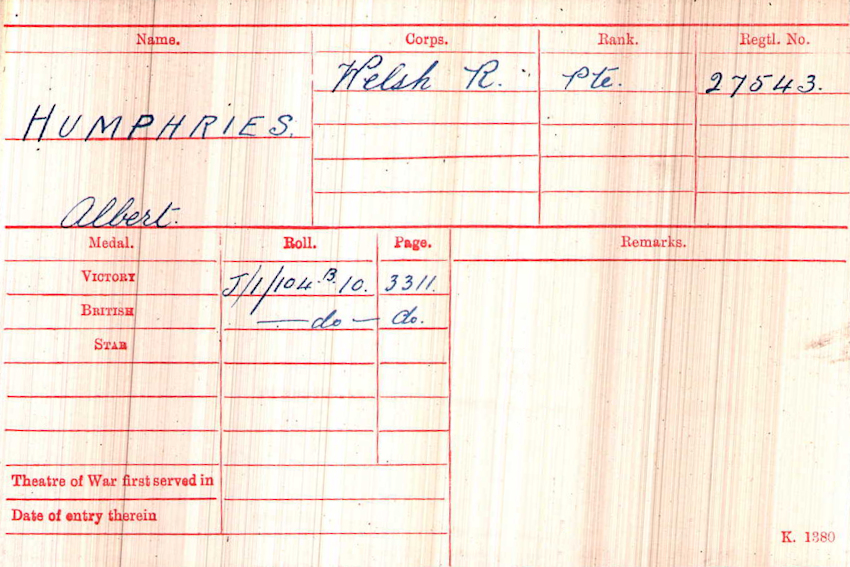 Name. Corps. Rank. Regtl. No.
Welsh R. Pte. 27543.
HUMPHRIES.
Albert.
Medal. Roll. Page. Remarks.
VICTORY J/1/104.B.10. 3311.
BRITISH —do— do.
STAR
Theatre of War first served in
Date of entry therein
K. 1380